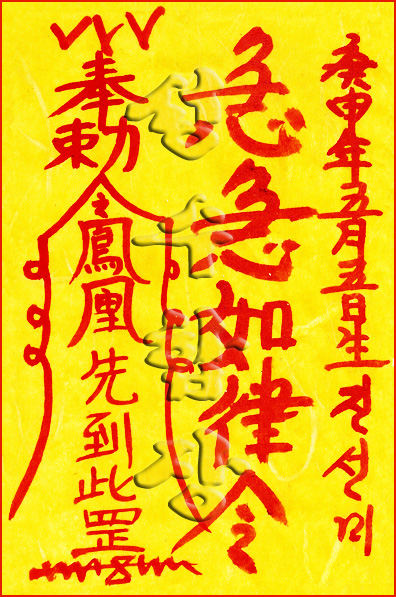 庚申年五月五日生 진선미
急急如律令
奉勅令鳳凰先到此罡